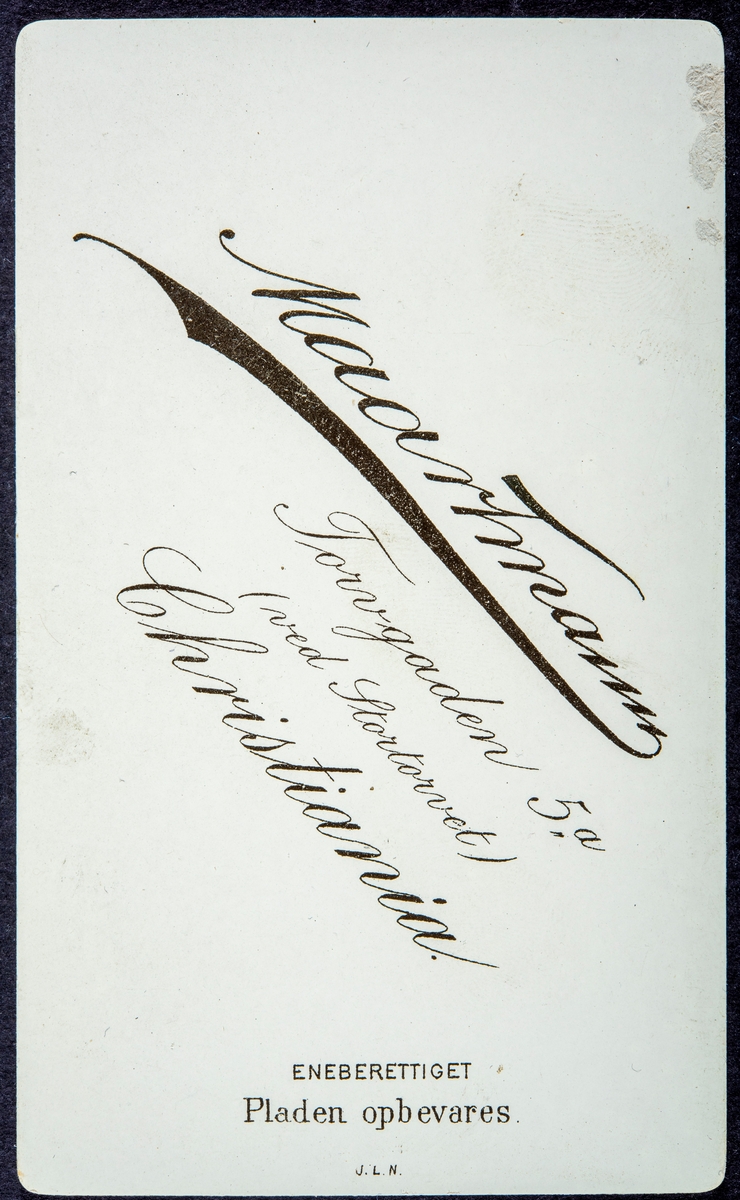 Maarthmann
Torvgaden 5,a
(ved Stortorvet)
Christiania.
ENEBERETTIGET
Pladen opbevares.
J. L. N.